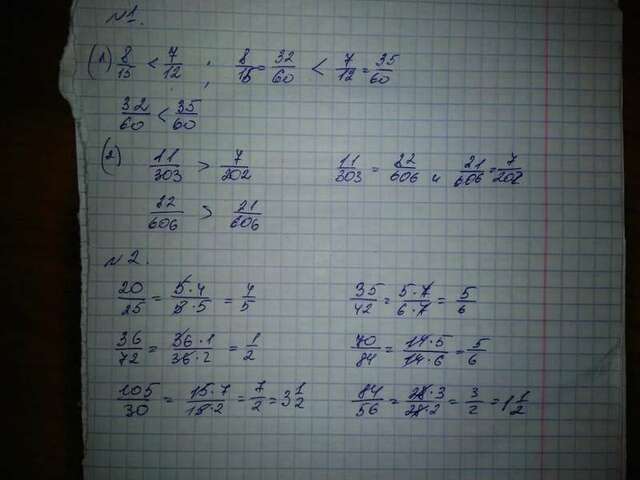 №1.
(1) 8/15 < 7/12 ; 8/15 = 32/60 < 7/12 = 35/60
32/60 < 35/60
(2) 11/303 > 7/202 11/303 = 22/606 и 21/606 = 7/202
22/606 > 21/606
№2.
20/25 = 5·4/5·5 = 4/5 35/42 = 5·7/6·7 = 5/6
36/72 = 36·1/36·2 = 1/2 70/84 = 14·5/14·6 = 5/6
105/30 = 15·7/15·2 = 7/2 = 3 1/2 84/56 = 28·3/28·2 = 3/2 = 1 1/2